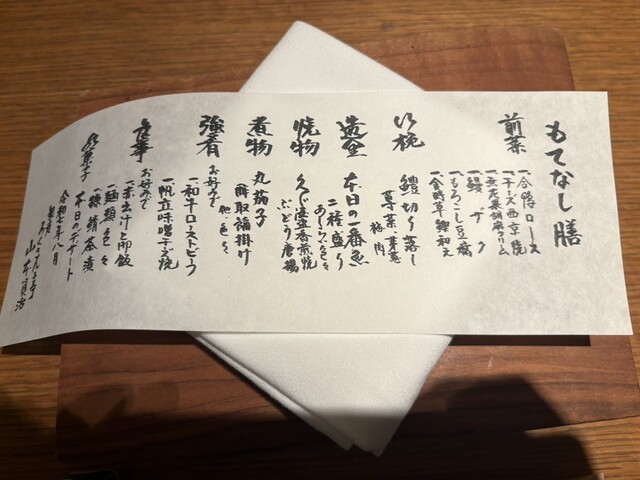 もてなし膳
前菜
一、合鴨ロース
一、チーズ西京焼
一、無花果胡麻クリーム
一、鰻ザク
一、もろこし豆腐
一、金時草 和え
御椀
鱧切り落し
梅肉
造里
本日の一番魚
二種盛り
あしらい色々
焼物
香煎焼
ぶどう唐揚
煮物
丸茄子
酔取福掛け
強肴
お好みで
一、和牛ローストビーフ
一、帆立味噌チーズ焼
他色々
食事
お好みで
一、赤出汁と御飯
一、麺類色々
一、鯖茶漬
水菓子
本日のデザート
令和七年八月
山本